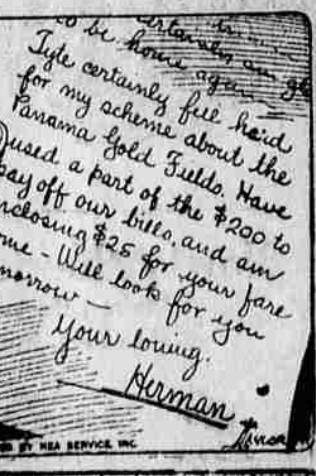 certainly am gl
to be home again
Tyte certainly fell hard
for my scheme about the
Panama Gold Fields. Have
used a part of the $200 to
pay off our bills, and am
nclosing $25 for your fare
me - Will look for you
morrow -
Your loving.
Herman
BY NEA SERVICE, INC